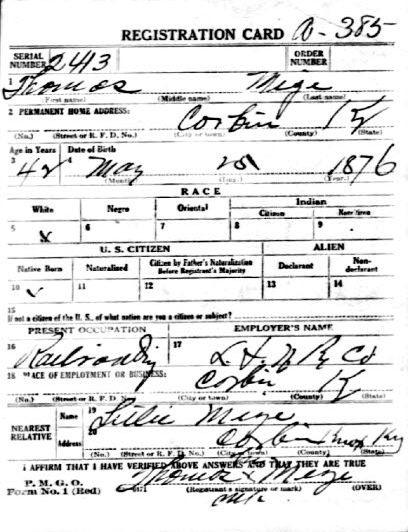 REGISTRATION CARD a-385
SERIAL NUMBER 2413 ORDER NUMBER
1 Thomas Mize
(First name) (Middle name) (Last name)
2 PERMANENT HOME ADDRESS: Corbin Ky
(No.) (Street or R. F. D. No.) (City or town) (County) (State)
Age in Years Date of Birth
3 42 4 May 25 1876
(Month) (Day) (Year)
RACE
White Negro Oriental Indian
Citizen Noncitizen
5 6 7 8 9
U. S. CITIZEN ALIEN
Native Born Naturalized Citizen by Father's Naturalization Before Registrant's Majority Declarant Non-declarant
10 11 12 13 14
15
If not a citizen of the U. S., of what nation are you a citizen or subject?
PRESENT OCCUPATION EMPLOYER'S NAME
16 Railroading 17 L & N Ry Co
18 PLACE OF EMPLOYMENT OR BUSINESS: Corbin Ky
(No.) (Street or R. F. D. No.) (City or town) (County) (State)
NEAREST RELATIVE Name 19 Lillie Mize
Address 20 Corbin Ky
(No.) (Street or R. F. D. No.) (City or town) (County) (State)
I AFFIRM THAT I HAVE VERIFIED ABOVE ANSWERS AND THAT THEY ARE TRUE
P. M. G. O.
Form No. 1 (Red) Thomas Mize
(Registrant's signature or mark) (OVER)